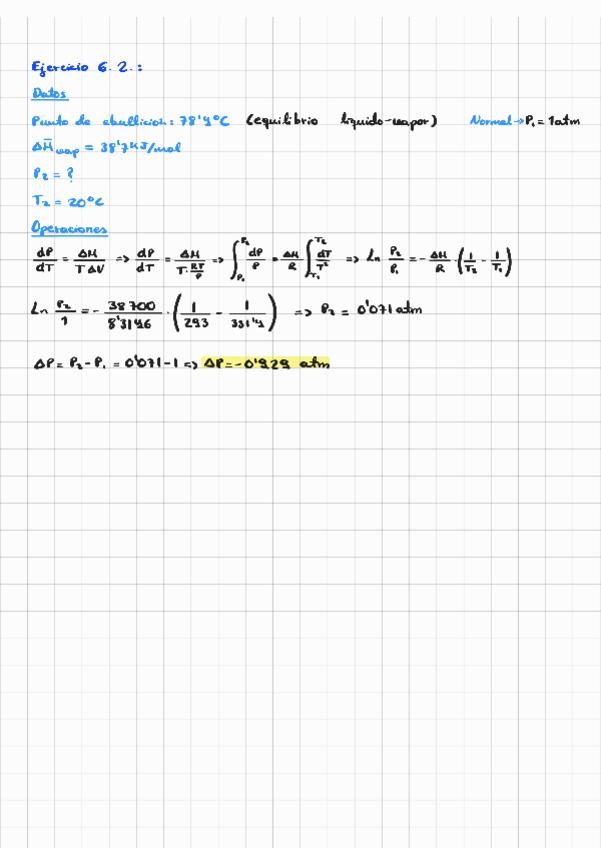 Ejercicio 6.2.:
Datos
Punto de ebullición: 78'4ºC (equilibrio líquido-vapor) Normal → P₁ = 1 atm
ΔH̅vap = 38'7 kJ/mol
P₂ = ?
T₂ = 20ºC
Operaciones
dP/dT = ΔH/(T ΔV) => dP/dT = ΔH/(T · RT/P) => ∫_{P₁}^{P₂} dP/P = ΔH/R ∫_{T₁}^{T₂} dT/T² => Ln P₂/P₁ = - ΔH/R · (1/T₂ - 1/T₁)
Ln P₂/1 = - 38700/8'3146 · (1/293 - 1/351'4) => P₂ = 0'071 atm
ΔP = P₂ - P₁ = 0'071 - 1 => ΔP = -0'929 atm